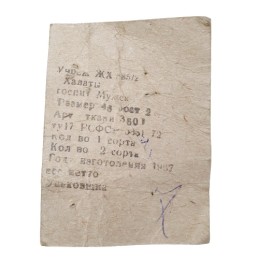 Халаты
госпит Мужск
Размер 48 рост 2
Арт ткани
ту17 РСФСР
Кол во 1 сорта
Кол во 2 сорта
Год изготовления 1987
вес нетто
Упаковщица